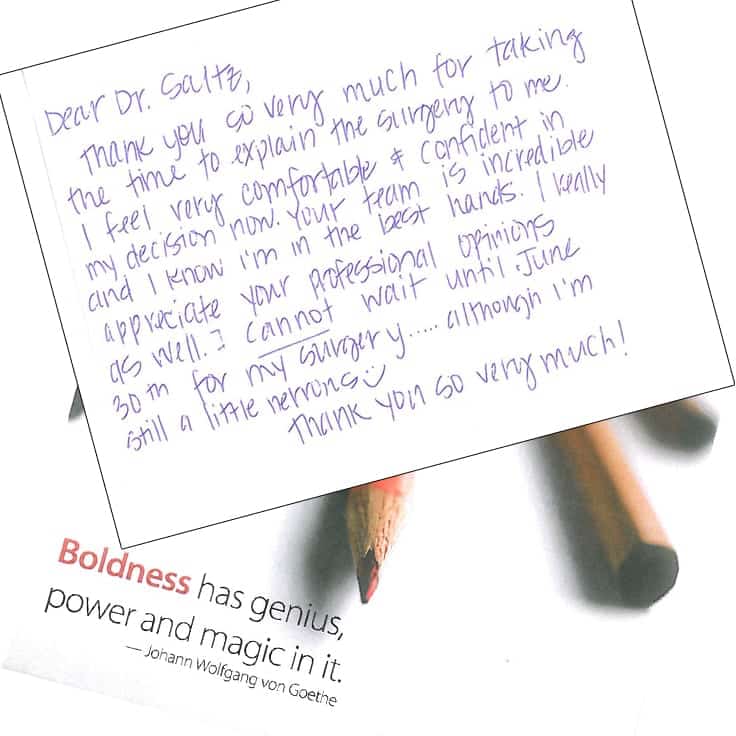 Dear Dr. Saltz,
Thank you so very much for taking
the time to explain the surgery to me.
I feel very comfortable & confident in
my decision now. Your team is incredible
and I know I'm in the best hands. I really
appreciate your professional opinions
as well. I cannot wait until June
30th for my surgery..... although I'm
still a little nervous
Thank you so very much!
Boldness has genius,
power and magic in it.
— Johann Wolfgang von Goethe